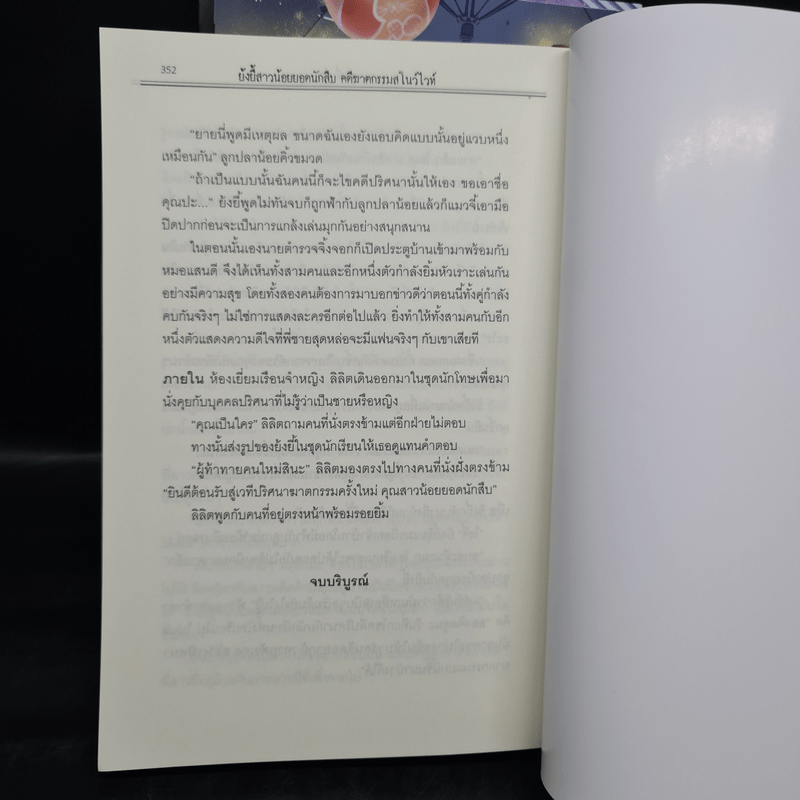 352
ยังยี้สาวน้อยยอดนักสืบ คดีฆาตกรรมสโนว์ไวท์
"ยายนี่พูดมีเหตุผล ขนาดฉันเองยังแอบคิดแบบนั้นอยู่แวบหนึ่ง
เหมือนกัน" ลูกปลาน้อยคิ้วขมวด
"ถ้าเป็นแบบนั้นฉันคนนี้ก็จะไขคดีปริศนานั้นให้เอง ขอเอาชื่อ
คุณปะ..." ยังยี้พูดไม่ทันจบก็ถูกฟ้ากับลูกปลาน้อยแล้วก็แมวจี้เอามือ
ปิดปากก่อนจะเป็นการแกล้งเล่นมุกกันอย่างสนุกสนาน
ในตอนนั้นเองนายตำรวจจิ้งจอกก็เปิดประตูบ้านเข้ามาพร้อมกับ
หมอแสนดี จึงได้เห็นทั้งสามคนและอีกหนึ่งตัวกำลังยิ้มหัวเราะเล่นกัน
อย่างมีความสุข โดยทั้งสองคนต้องการมาบอกข่าวดีว่าตอนนี้ทั้งคู่กำลัง
คบกันจริงๆ ไม่ใช่การแสดงละครอีกต่อไปแล้ว ยิ่งทำให้ทั้งสามคนกับอีก
หนึ่งตัวแสดงความดีใจที่พี่ชายสุดหล่อจะมีแฟนจริงๆ กับเขาเสียที
ภายใน ห้องเยี่ยมเรือนจำหญิง ลิลิตเดินออกมาในชุดนักโทษเพื่อมา
นั่งคุยกับบุคคลปริศนาที่ไม่รู้ว่าเป็นชายหรือหญิง
"คุณเป็นใคร" ลิลิตถามคนที่นั่งตรงข้ามแต่อีกฝ่ายไม่ตอบ
ทางนั้นส่งรูปของยังยี้ในชุดนักเรียนให้เธอดูแทนคำตอบ
"ผู้ท้าทายคนใหม่สินะ" ลิลิตมองตรงไปทางคนที่นั่งฝั่งตรงข้าม
"ยินดีต้อนรับสู่เวทีปริศนาฆาตกรรมครั้งใหม่ คุณสาวน้อยยอดนักสืบ"
ลิลิตพูดกับคนที่อยู่ตรงหน้าพร้อมรอยยิ้ม
จบบริบูรณ์